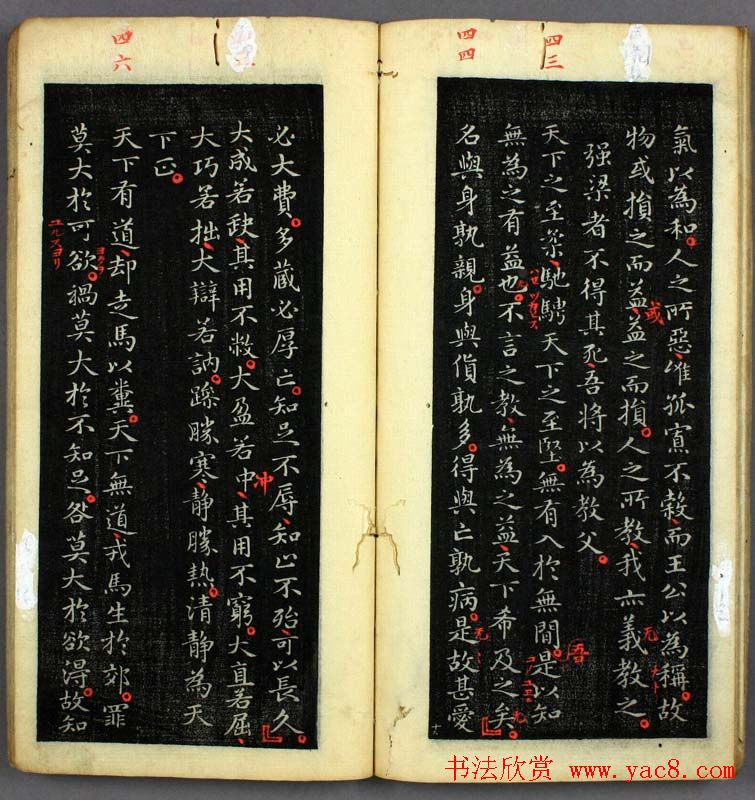 四三
四四
氣以為和人之所惡惟孤寡不穀而王公以為稱故
物或損之而益益之而損人之所教我亦義教之
强梁者不得其死吾將以為教父
天下之至柔馳騁天下之至堅無有入於無間是以知
無為之有益也不言之教無為之益天下希及之矣
名與身孰親身與貨孰多得與亡孰病是故甚愛
或
吾
四六
必大費多藏必厚亡知足不辱知止不殆可以長久
大成若缺其用不敝大盈若中其用不窮大直若屈
大巧若拙大辯若訥躁勝寒静勝熱清静為天
下正
天下有道却走馬以糞天下無道戎馬生於郊罪
莫大於可欲禍莫大於不知足咎莫大於欲得故知
冲
书法欣赏 www.yac8.com